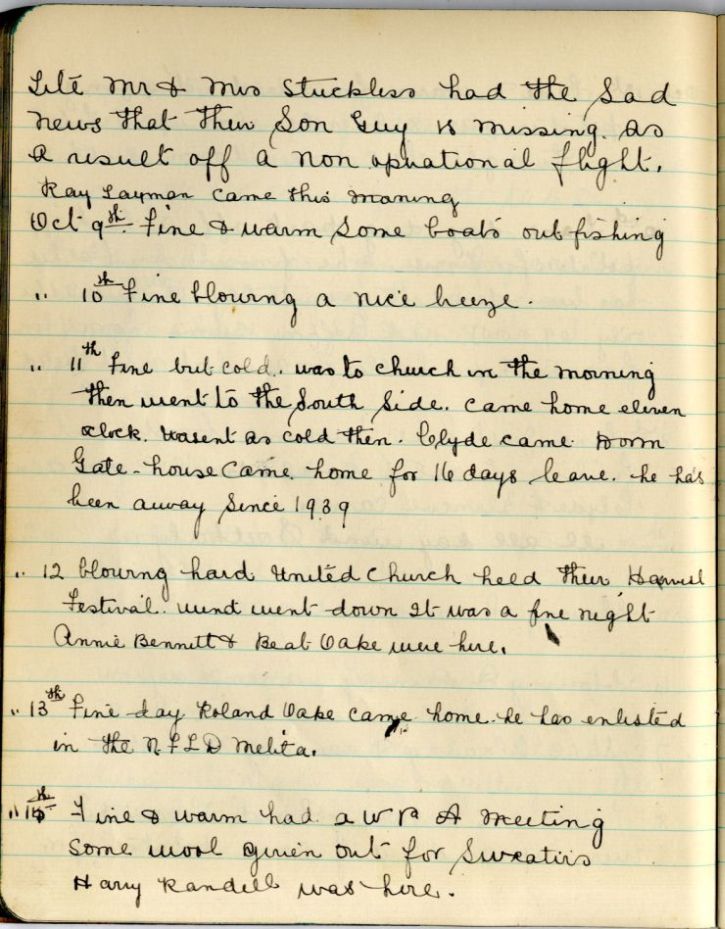 Lite Mr & Mrs Stuckless had the Sad
news that their Son Guy is missing. as
a result off a non opuational flight.
Ray Layman came this morning
Oct 9th. Fine & warm Some boats out fishing
" 10th Fine blowing a nice breeze.
" 11th Fine but cold. was to church in the morning
then went to the South Side. Came home eleven
oclock. Wasent as cold then. Clyde came
Gate-house Came home for 16 days leave. he has
been away Since 1939
" 12 blowing hard United Church held their Harvest
Festival. wind went down It was a fine night
Annie Bennett & Beat Oake were here.
" 13th Fine day Roland Oake came home. he has enlisted
in the NFLD Melita.
" Fine & warm had a W P A Meeting
Some wool given out for Sweatirs
Harry Randell was here.